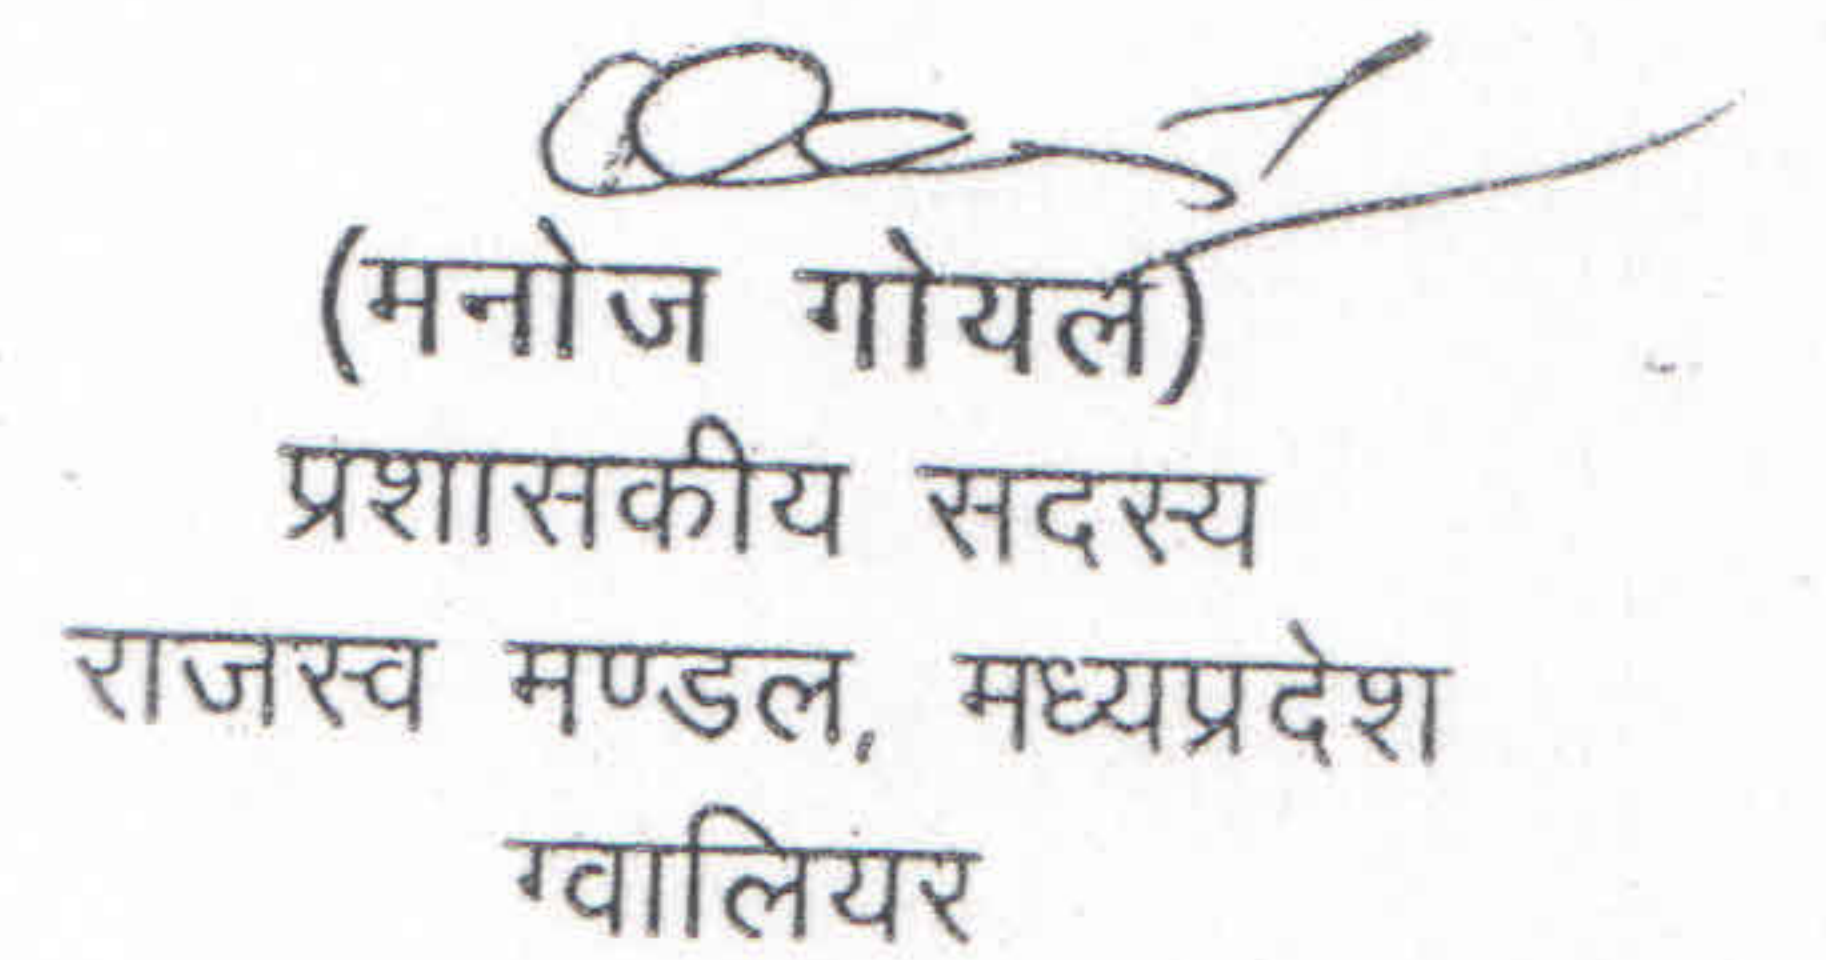 (मनोज गोयल)
प्रशासकीय सदस्य
राजस्व मण्डल, मध्यप्रदेश
ग्वालियर